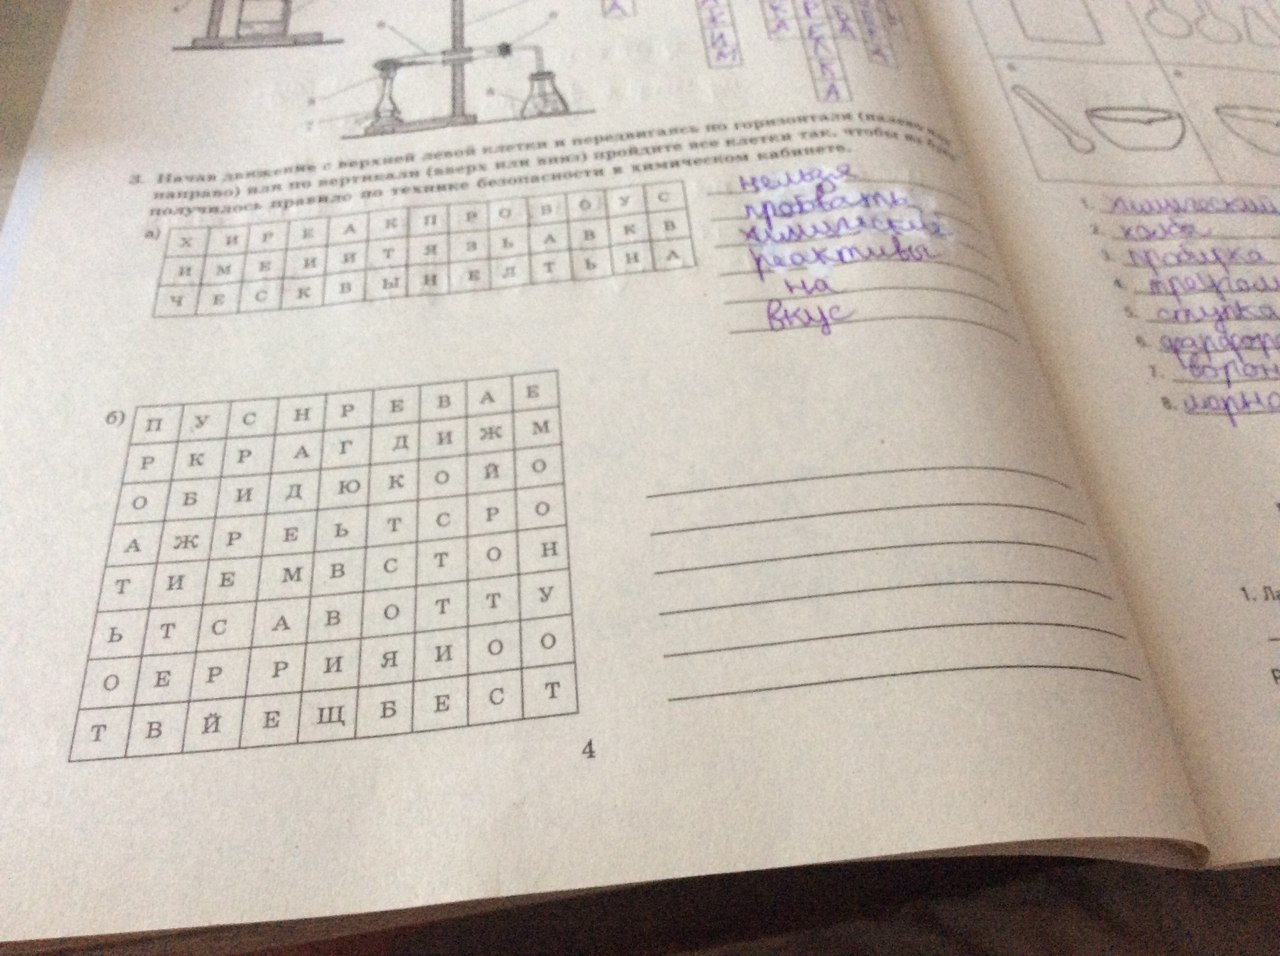 А
С
К
И
М
К
А
Р
Е
К
К
А
3. Начав движение с верхней левой клетки и передвигаясь по горизонтали (налево или
направо) или по вертикали (вверх или вниз) пройдите все клетки так, чтобы
получилось правило по технике безопасности в химическом кабинете.
а)
Х И Р Е А К П Р О В О У С
И М Е И И Т Я З Ь А В К В
Ч Е С К В Ы Н Е Л Т Ь Н А
нельзя
пробвать
химические
реактивы
на
вкус
б)
П У С Н Р Е В А Е
Р К Р А Г Д И Ж М
О Б И Д Ю К О Й О
А Ж Р Е Ь Т С Р О
Т И Е М В С Т О Н
Ь Т С А В О Т Т У
О Е Р Р И Я И О О
Т В Й Е Щ Б Е С Т
4
1. химический
2. колба
3. пробирка
4.
5. ступка
6.
7. ворон
8.
1. Ла